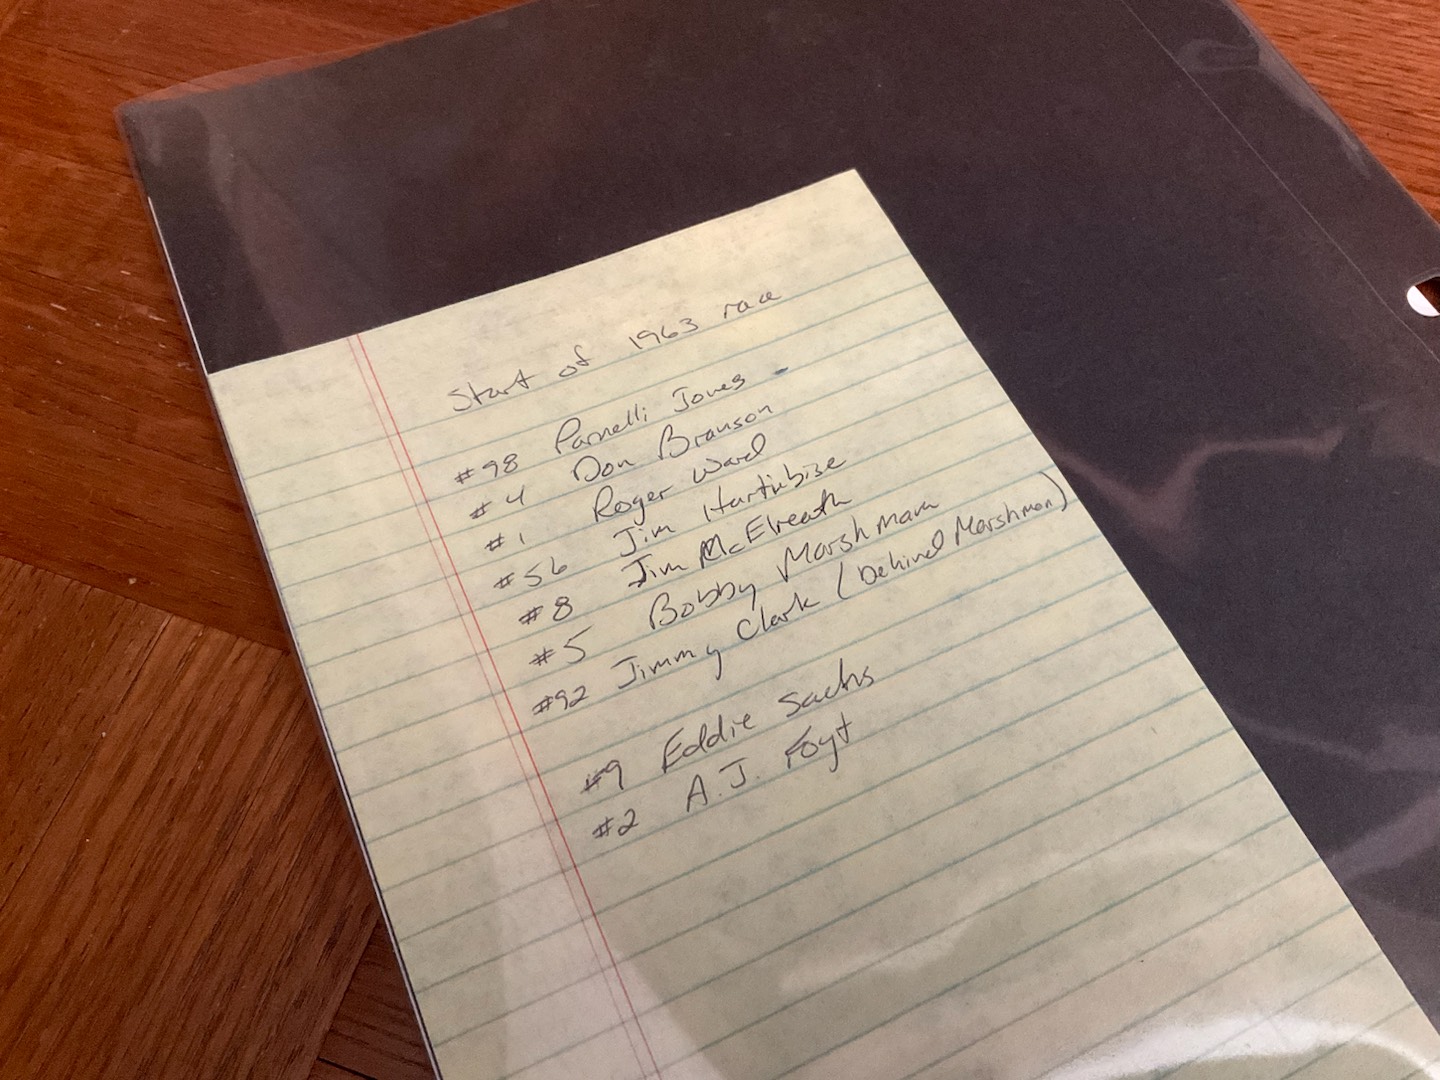 Start of 1963 race
#98 Parnelli Jones
#4 Don Branson
#1 Roger Ward
#56 Jim Hurtubise
#8 Jim McElreath
#5 Bobby Marshmam
#92 Jimmy Clark (behind Marshman)
#9 Eddie Sachs
#2 A.J. Foyt